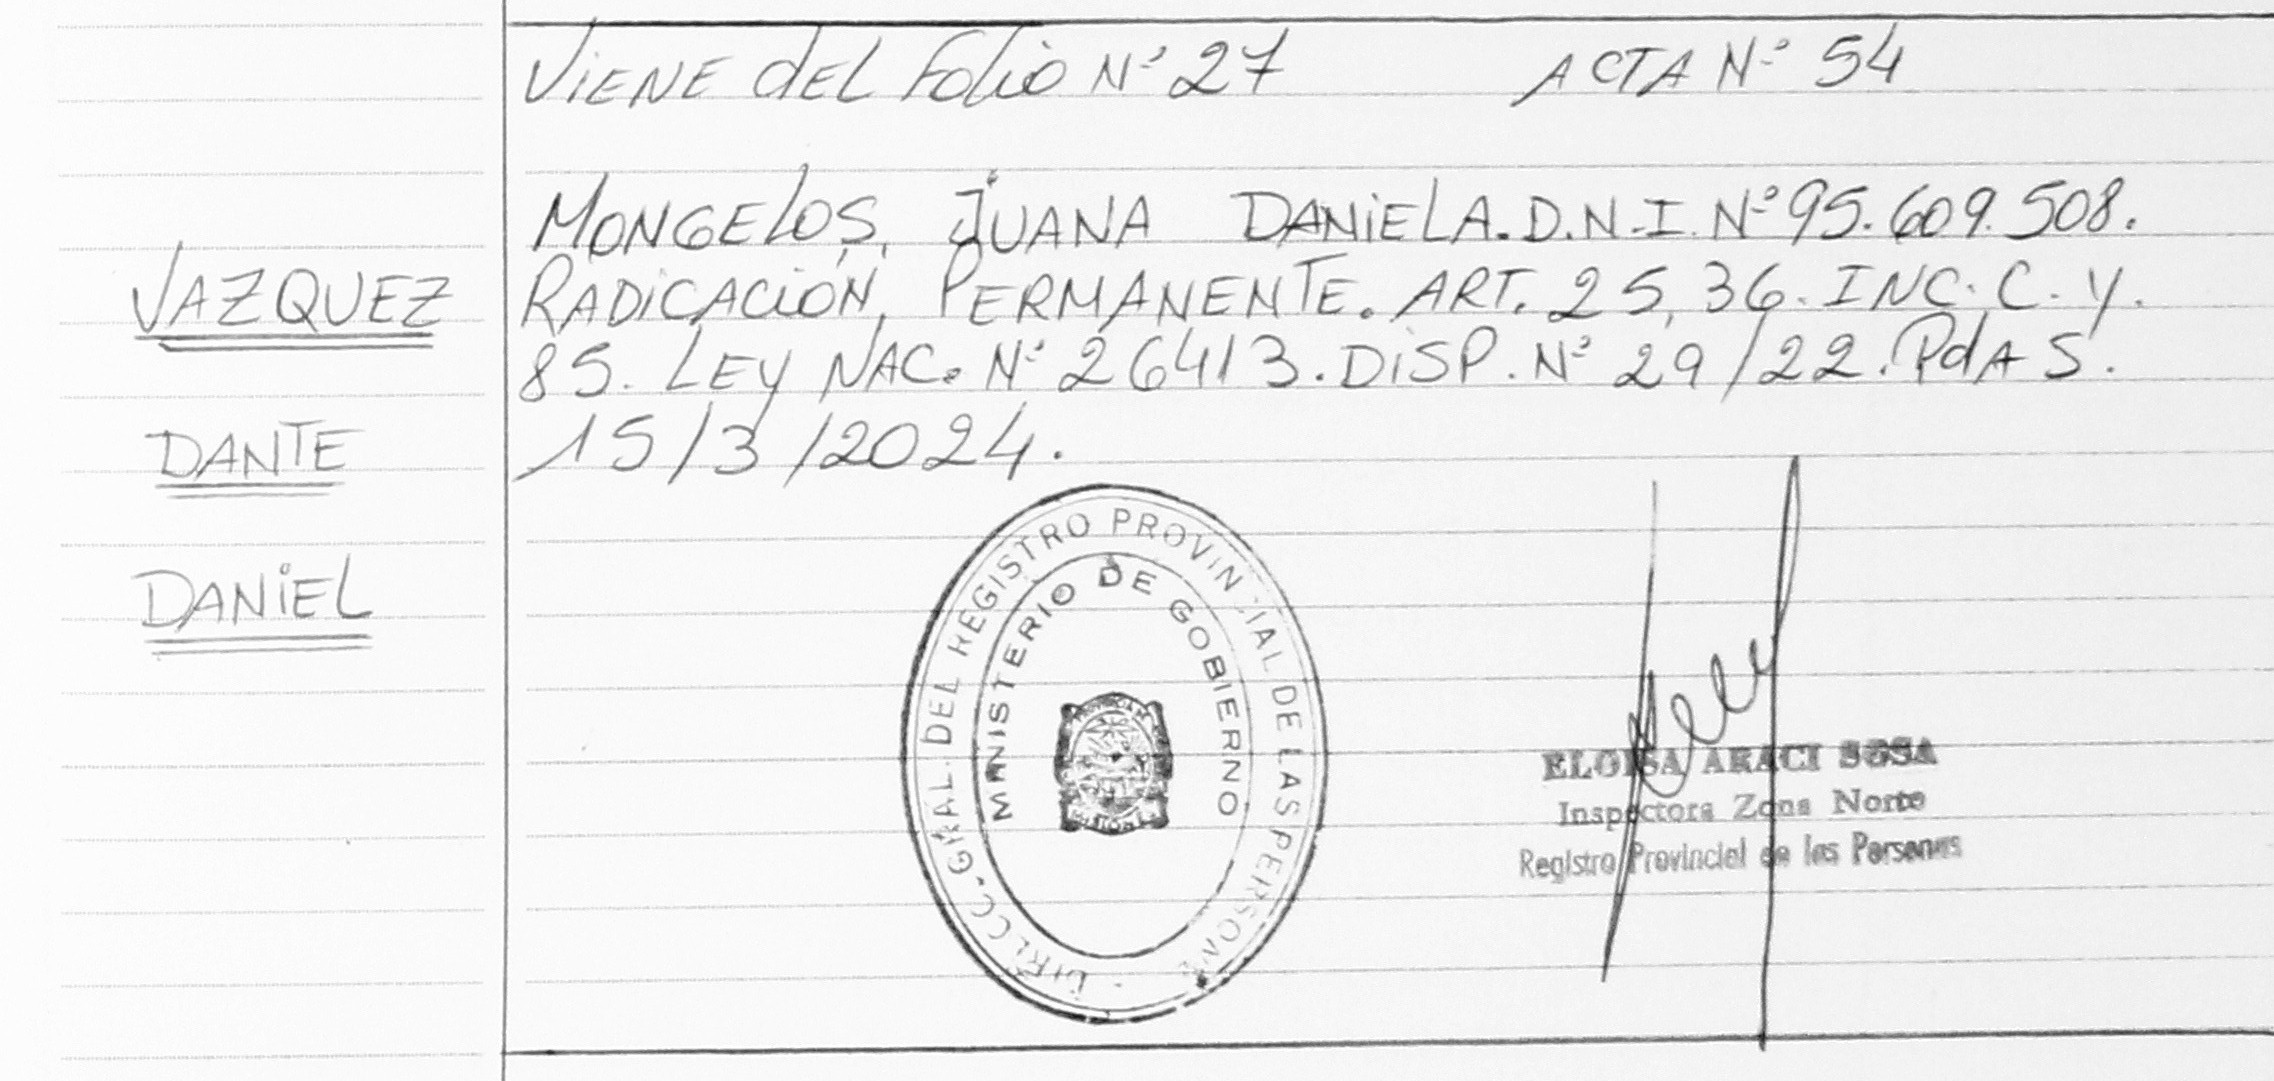 VIENE DEL Folio Nº 27 ACTA Nº 54
MONGELOS, JUANA DANIELA. D.N.I. Nº 95.609.508.
RADICACIÓN, PERMANENTE. ART. 25, 36. INC. C. Y.
85. LEY NAC. Nº 26413. DISP. Nº 29/22. PdAS.
15/3/2024.
VAZQUEZ
DANTE
DANIEL
DIRECC. GRAL. DEL REGISTRO PROVINCIAL DE LAS PERSONAS
MINISTERIO DE GOBIERNO
ELOISA ARACI SOSA
Inspectora Zona Norte
Registro Provincial de las Personas